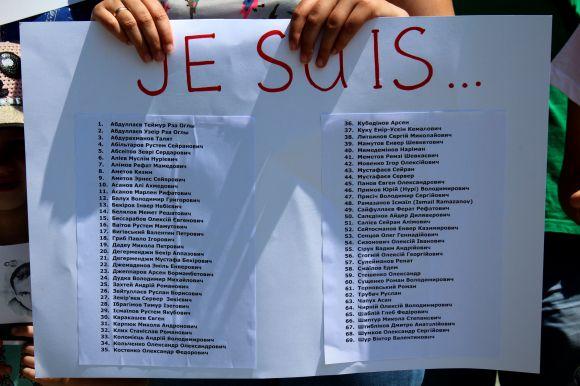 JE SUIS...
1. Абдуллаєв Теймур Раа Оглы
2. Абдуллаєв Узеір Раа Оглы
3. Абдурахманов Талят
4. Абільтаров Рустем Сейранович
5. Абсеітов Зеврі Сердарович
6. Алієв Муслім Нурієвич
7. Алімов Рефат Маметович
8. Аметов Кязим
9. Аметов Эрнес Сейярович
10. Асанов Алі Ахмедович
11. Асанов Марлен Рифатович
12. Балух Володимир Григорович
13. Бекіров Інвер Набієвич
14. Белялов Мемет Решатович
15. Бессарабов Олексій Євгенович
16. Ваїтов Рустем Мамутович
17. Вигівський Валентин Петрович
18. Гриб Павло Ігорович
19. Дадеу Микола Петрович
20. Дегерменджи Бекір Аппазович
21. Дегерменджи Мустафа Бекірович
22. Джемаденов Эміль Енверович
23. Джеппаров Арсен Борманбетович
24. Дудка Володимир Михайлович
25. Захтей Андрій Романович
26. Зейтуллаєв Руслан Борисович
27. Зекір'яєв Сервер Зекієвич
28. Ібрагімов Тимур Ізетович
29. Ісмаїлов Рустем Якубович
30. Каракашев Євген
31. Карпюк Микола Андронович
32. Клих Станіслав Романович
33. Коломієць Андрій Володимирович
34. Кольченко Олександр Олександрович
35. Костенко Олександр Федорович
36. Кубединов Арсен
37. Куку Емір-Усеїн Кемалович
38. Литвинов Сергій Миколайович
39. Мамутов Енвер Шевкатович
40. Мамедемінов Наріман
41. Меметов Ремзі Шевкетович
42. Мовенко Ігор Олексійович
43. Мустафаєв Сейран
44. Мустафаєв Сервер
45. Панов Євген Олександрович
46. Примов Юрій (Нурі) Володимирович
47. Присіч Володимир Сергійович
48. Рамазанов Ісмаїл (Ismail Ramazanov)
49. Сайфуллаєв Ферат Рефатович
50. Саледінов Айдер Диляверович
51. Салієв Сейран Алімович
52. Сейтосманов Енвер Казимирович
53. Сенцов Олег Геннадійович
54. Сизонович Олексій Іванович
55. Сіцук Вадим Андрійович
56. Стогній Олексій Георгійович
57. Сулейманов Ренат
58. Смаїлов Едем
59. Стешенко Олександр
60. Сущенко Роман Володимирович
61. Терновський Роман
62. Трубач Руслан
63. Чапух Асан
64. Чирній Олексій Володимирович
65. Шаблій Глєб Федорович
66. Шиптур Микола Степанович
67. Штиблінов Дмитро Анатолійович
68. Шумков Олександр Сергійович
69. Шур Віктор Валентинович